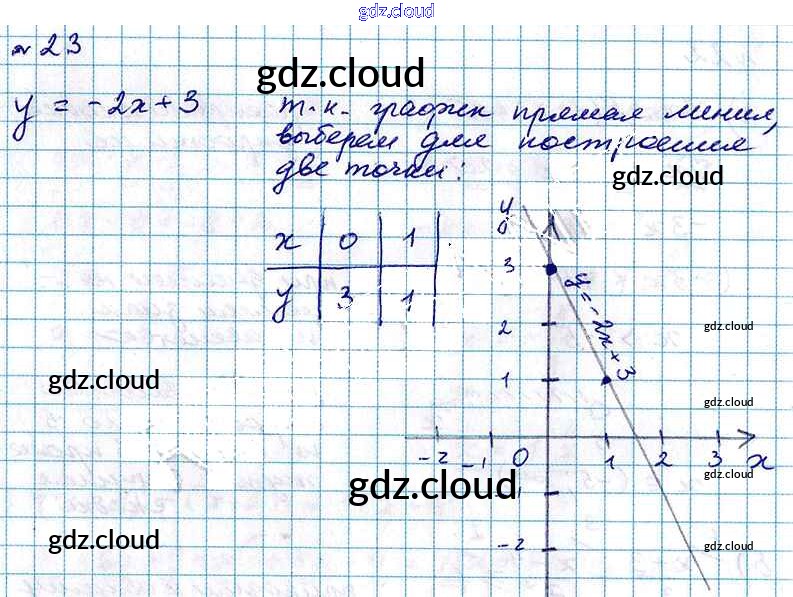 gdz.cloud
№ 23
gdz.cloud
y = -2x + 3
т.к. график прямая линия,
выберем для построения
две точки:
gdz.cloud
x 0 1
y 3 1
y
3
2
1
y = -2x + 3
-2 -1 0 1 2 3 x
-2
gdz.cloud
gdz.cloud
gdz.cloud
gdz.cloud
gdz.cloud
gdz.cloud
gdz.cloud